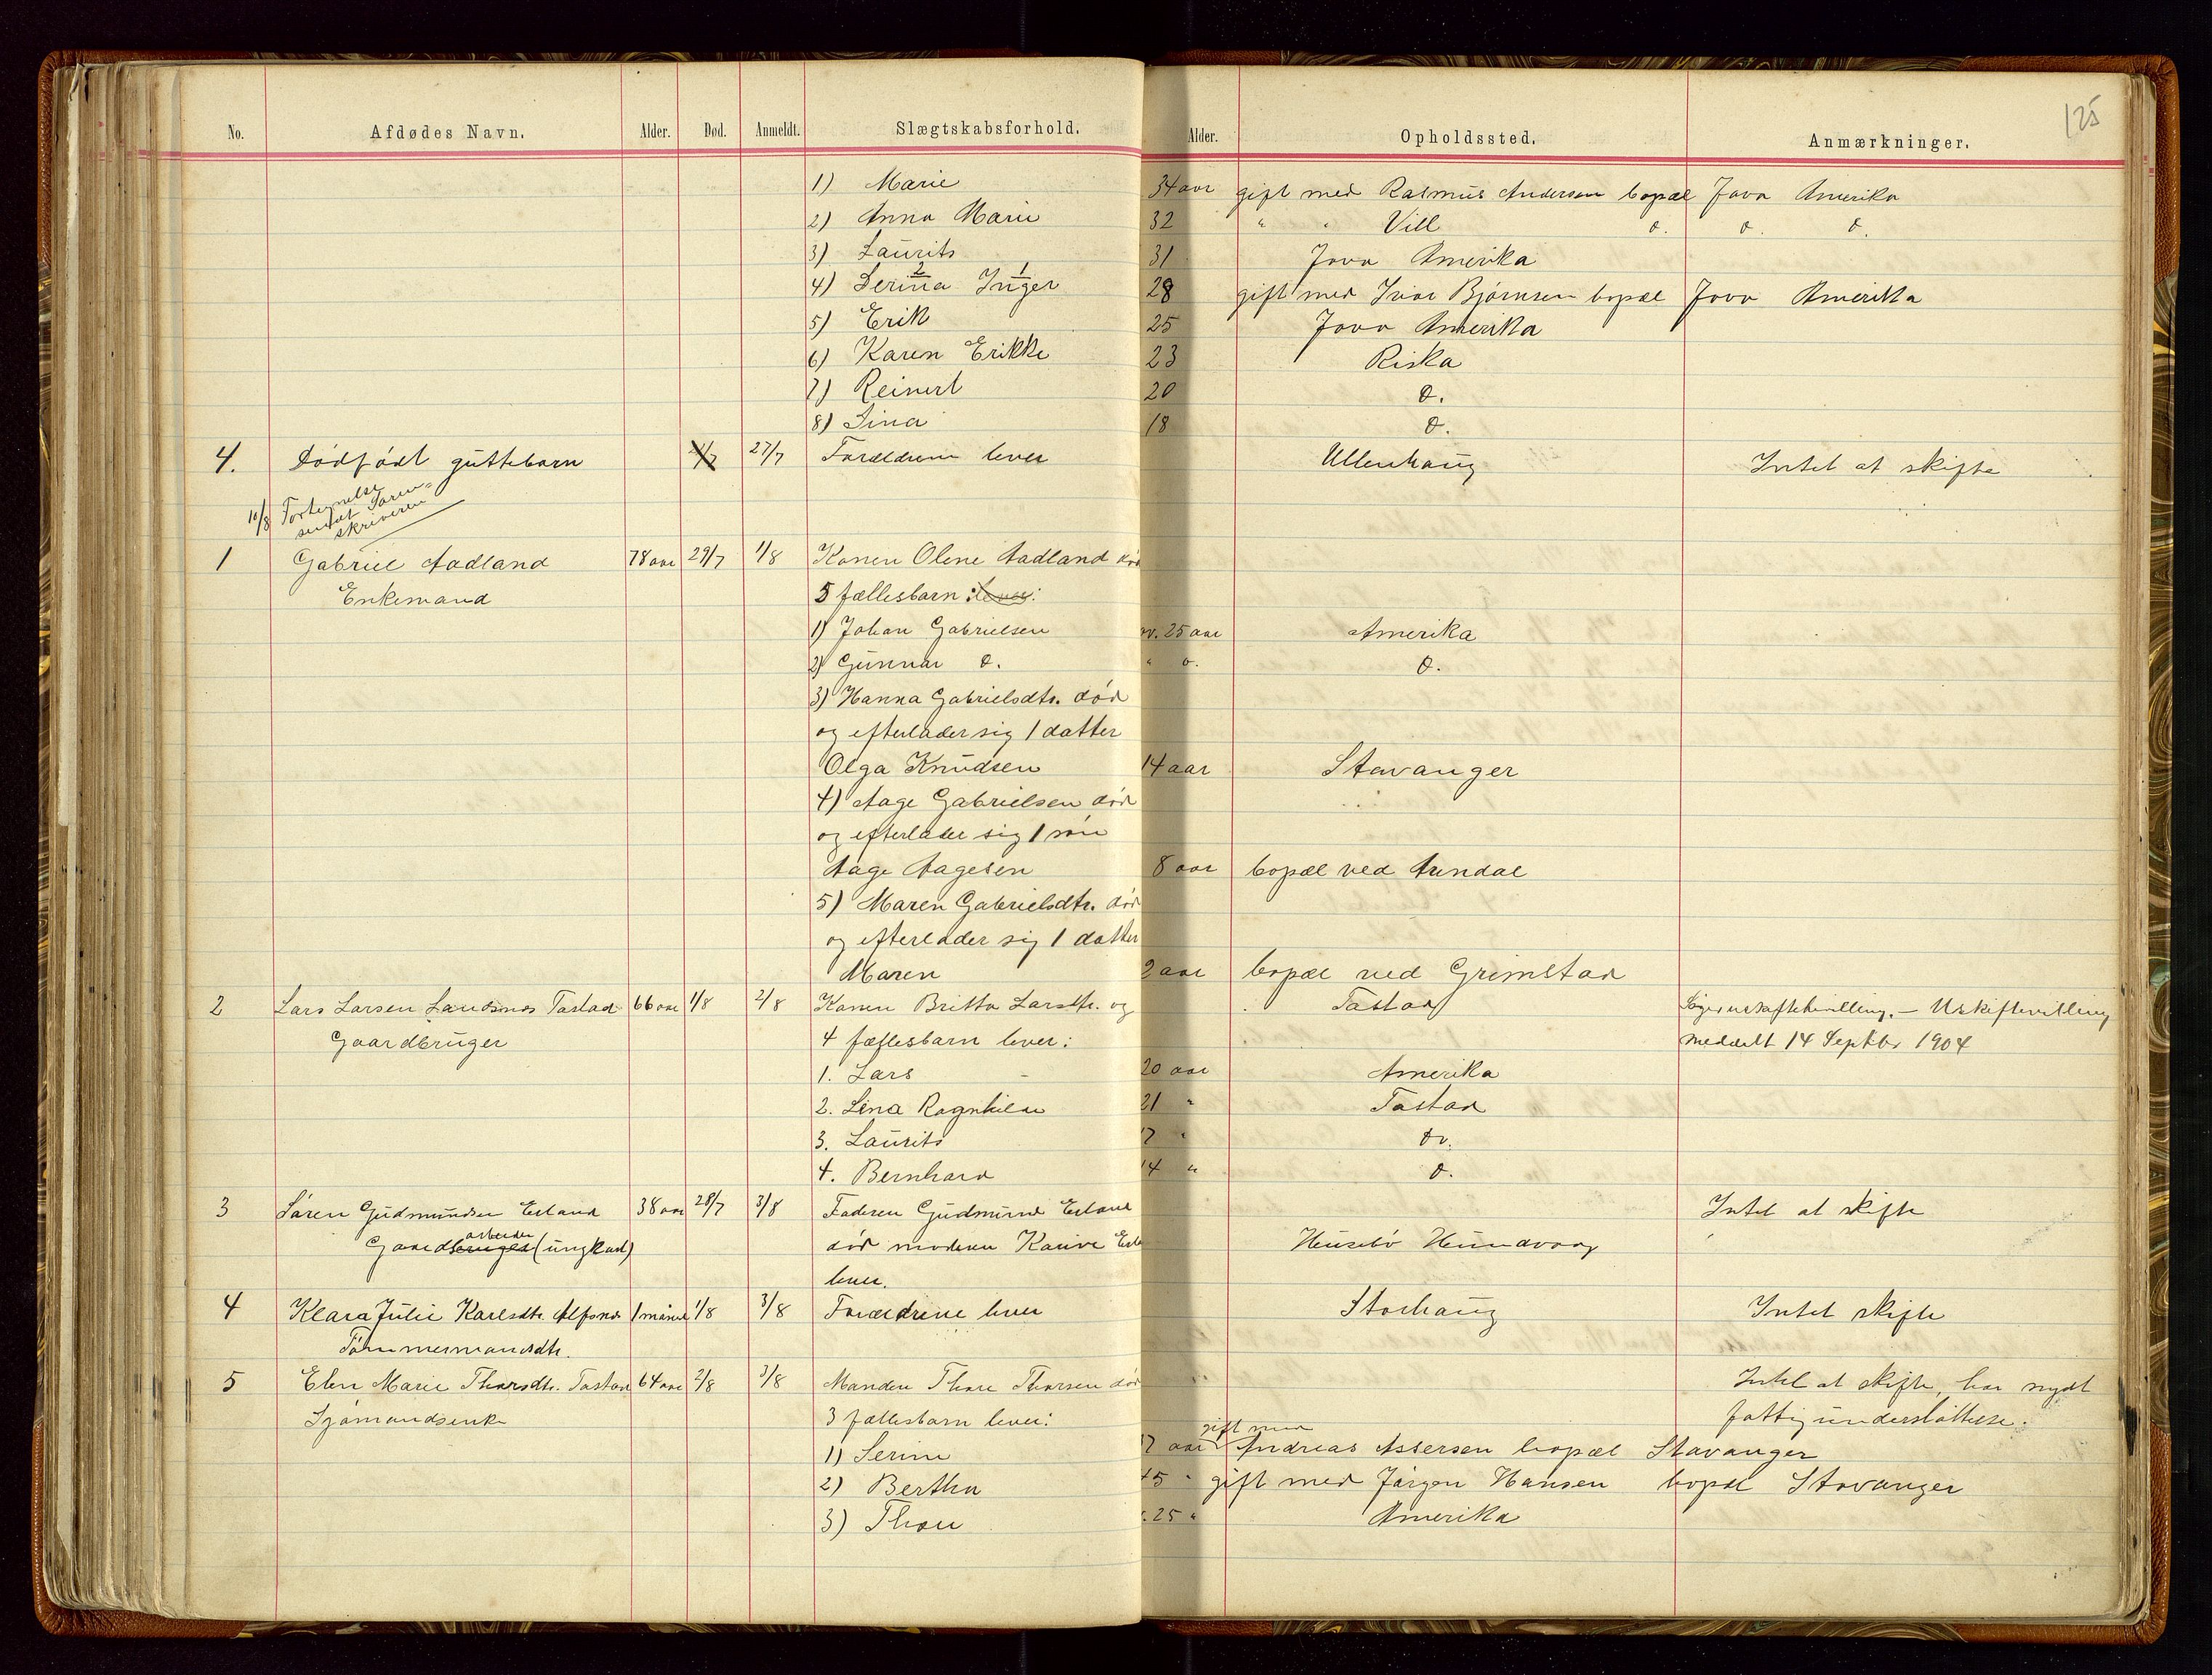 125
No. Afdødes Navn. Alder. Død. Anmeldt. Slægtskabsforhold. Alder. Opholdssted. Anmærkninger.
1) Marie 34 aar gift med Rasmus Andersen bopæl Jova Amerika
2) Anna Marie 32 " " Vill d. d. d.
3) Laurits 31 Jova Amerika
4) Serina 2 Inger 1 28 gift med Ivar Bjørnsen bopæl Jova Amerika
5) Erik 25 Jova Amerika
6) Karen Erikke 23 Riska
7) Reinert 20 d.
8) Sina 18 d.
4. Dødfødt guttebarn 27/7 Forældrene lever Ullenhaug Intet at skifte
10/8 Fortegnelse
sendt Soren-
skriveren
1 Gabriel Aadland 78 aar 29/7 1/8 Konen Olene Aadland død
Enkemand 5 fællesbarn lever:
1) Johan Gabrielsen ov. 25 aar Amerika
2) Gunnar d. " d. d.
3) Hanna Gabrielsdtr. død
og efterlader sig 1 datter
Olga Knudsen 14 aar Stavanger
4) Aage Gabrielsen død
og efterlader sig 1 søn
Aage Aagesen 8 aar bopæl ved Arendal
5) Maren Gabrielsdtr. død
og efterlader sig 1 datter
Maren 2 aar bopæl ved Grimstad
2 Lars Larsen Tastad 66 aar 1/8 2/8 Konen Britta Larsdtr. og Tastad Uskiftevilling
Gaardbruger 4 fællesbarn lever: meddelt 14 Septbr 1904
1. Lars 20 aar Amerika
2. Lina Ragnhild 21 " Tastad
3. Laurits 17 " do.
4. Bernhard 14 " d.
3 Søren Gudmundsen Erland 38 aar 28/7 3/8 Faderen Gudmund Erland Intet at skifte
arbeider
Gaardbruger (ungkarl) død moderen Husebø Hundvaag
lever.
4 Klara Julie Karlsdtr. Alfsnes 1 måned 1/8 3/8 Forældrene lever Storhaug Intet skifte
Tømmermandsdtr.
5 Elen Marie Thorsdtr. Tastad 64 aar 2/8 3/8 Manden Thore Thorsen død Intet at skifte, har nydt
Sjømandsenke 3 fællesbarn lever: fattigunderstøttelse.
gift med
1) Serine aar Andreas Assersen bopæl Stavanger
2) Bertha 45 " gift med Jørgen Hansen bopæl Stavanger
3) Thore 25 " Amerika